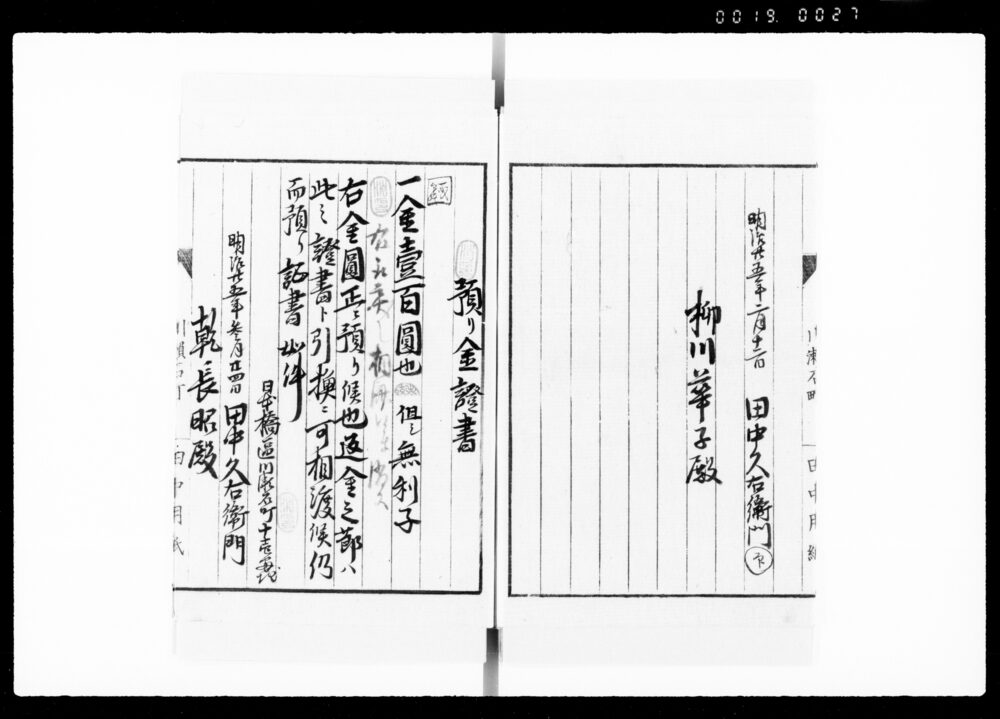 0019.0027
明治廿五年二月十二日
田中久右衛門
柳川華子殿
預り金證書
一金壹百圓也 但シ無利子
右金圓正ニ預り候也返金之節ハ
此之證書ト引換ニ可相渡候仍
而預り証書如件
日本橋區川瀬石町十
明治廿五年参月廿四日
田中久右衛門
乾長昭殿
川瀬石町
田中用紙